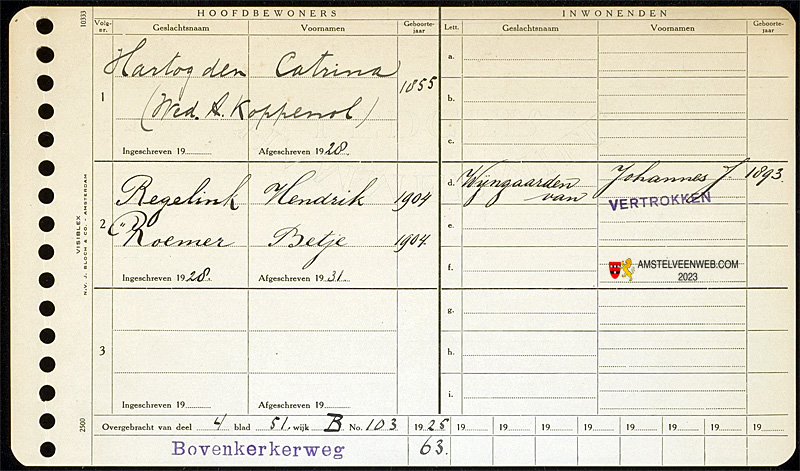 HOOFDBEWONERS
Volg-
nr.
Geslachtsnaam
Voornamen
Geboorte-
jaar
1
Hartog den Catrina 1855
(Wed. A. Koppenol)
Ingeschreven 19
Afgeschreven 1928.
2
Regelink Hendrik 1904
Roemer Betje 1904.
Ingeschreven 1928.
Afgeschreven 1931.
3
Ingeschreven 19
Afgeschreven 19
INWONENDEN
Lett.
Geslachtsnaam
Voornamen
Geboorte-
jaar
a.
b.
c.
d. Wijngaarden van Johannes J. 1893.
VERTROKKEN
e.
f.
AMSTELVEENWEB.COM
2023
g.
h.
i.
Overgebracht van deel 4 blad 51. wijk B No. 103 1925 19 19 19 19 19 19 19 19
Bovenkerkerweg 63.
10333
VISIBLEX
N.V. J. BLOCH & CO. - AMSTERDAM
2500